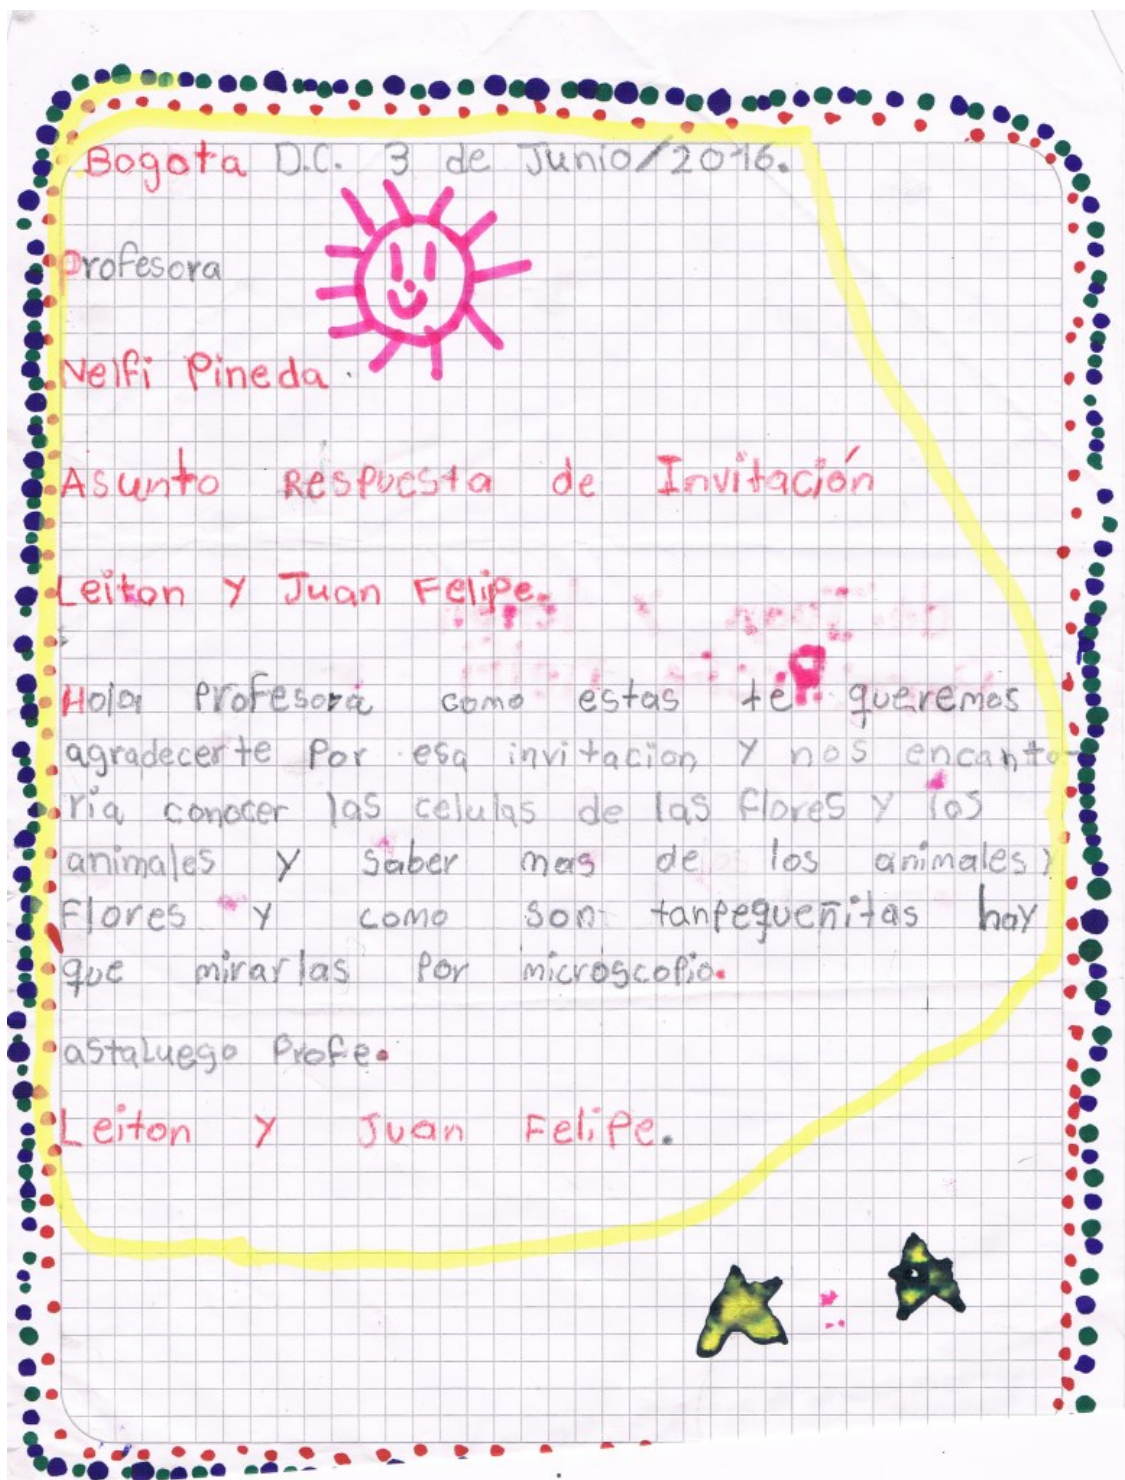 Bogota D.C. 3 de Junio/2016.
Profesora
Nelfi Pineda.
Asunto Respuesta de Invitación
Leiton y Juan Felipe.
Hola Profesora como estas te queremos
agradecerte Por esa invitacion y nos encanta-
ria conocer las celulas de las flores y los
animales y saber mas de los animales y
Flores y como son tanpequeñitas hay
que mirarlas Por microscopio.
astaluego Profe.
Leiton y Juan Felipe.